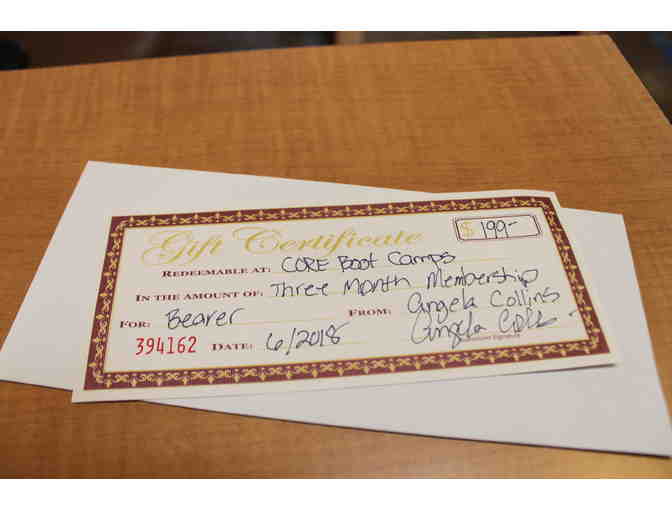 Gift Certificate
$ 199-
REDEEMABLE AT: CORE Boot Camps
IN THE AMOUNT OF: Three Month Membership
FOR: Bearer FROM: Angela Collins
394162 DATE: 6/2018 Angela
Signature